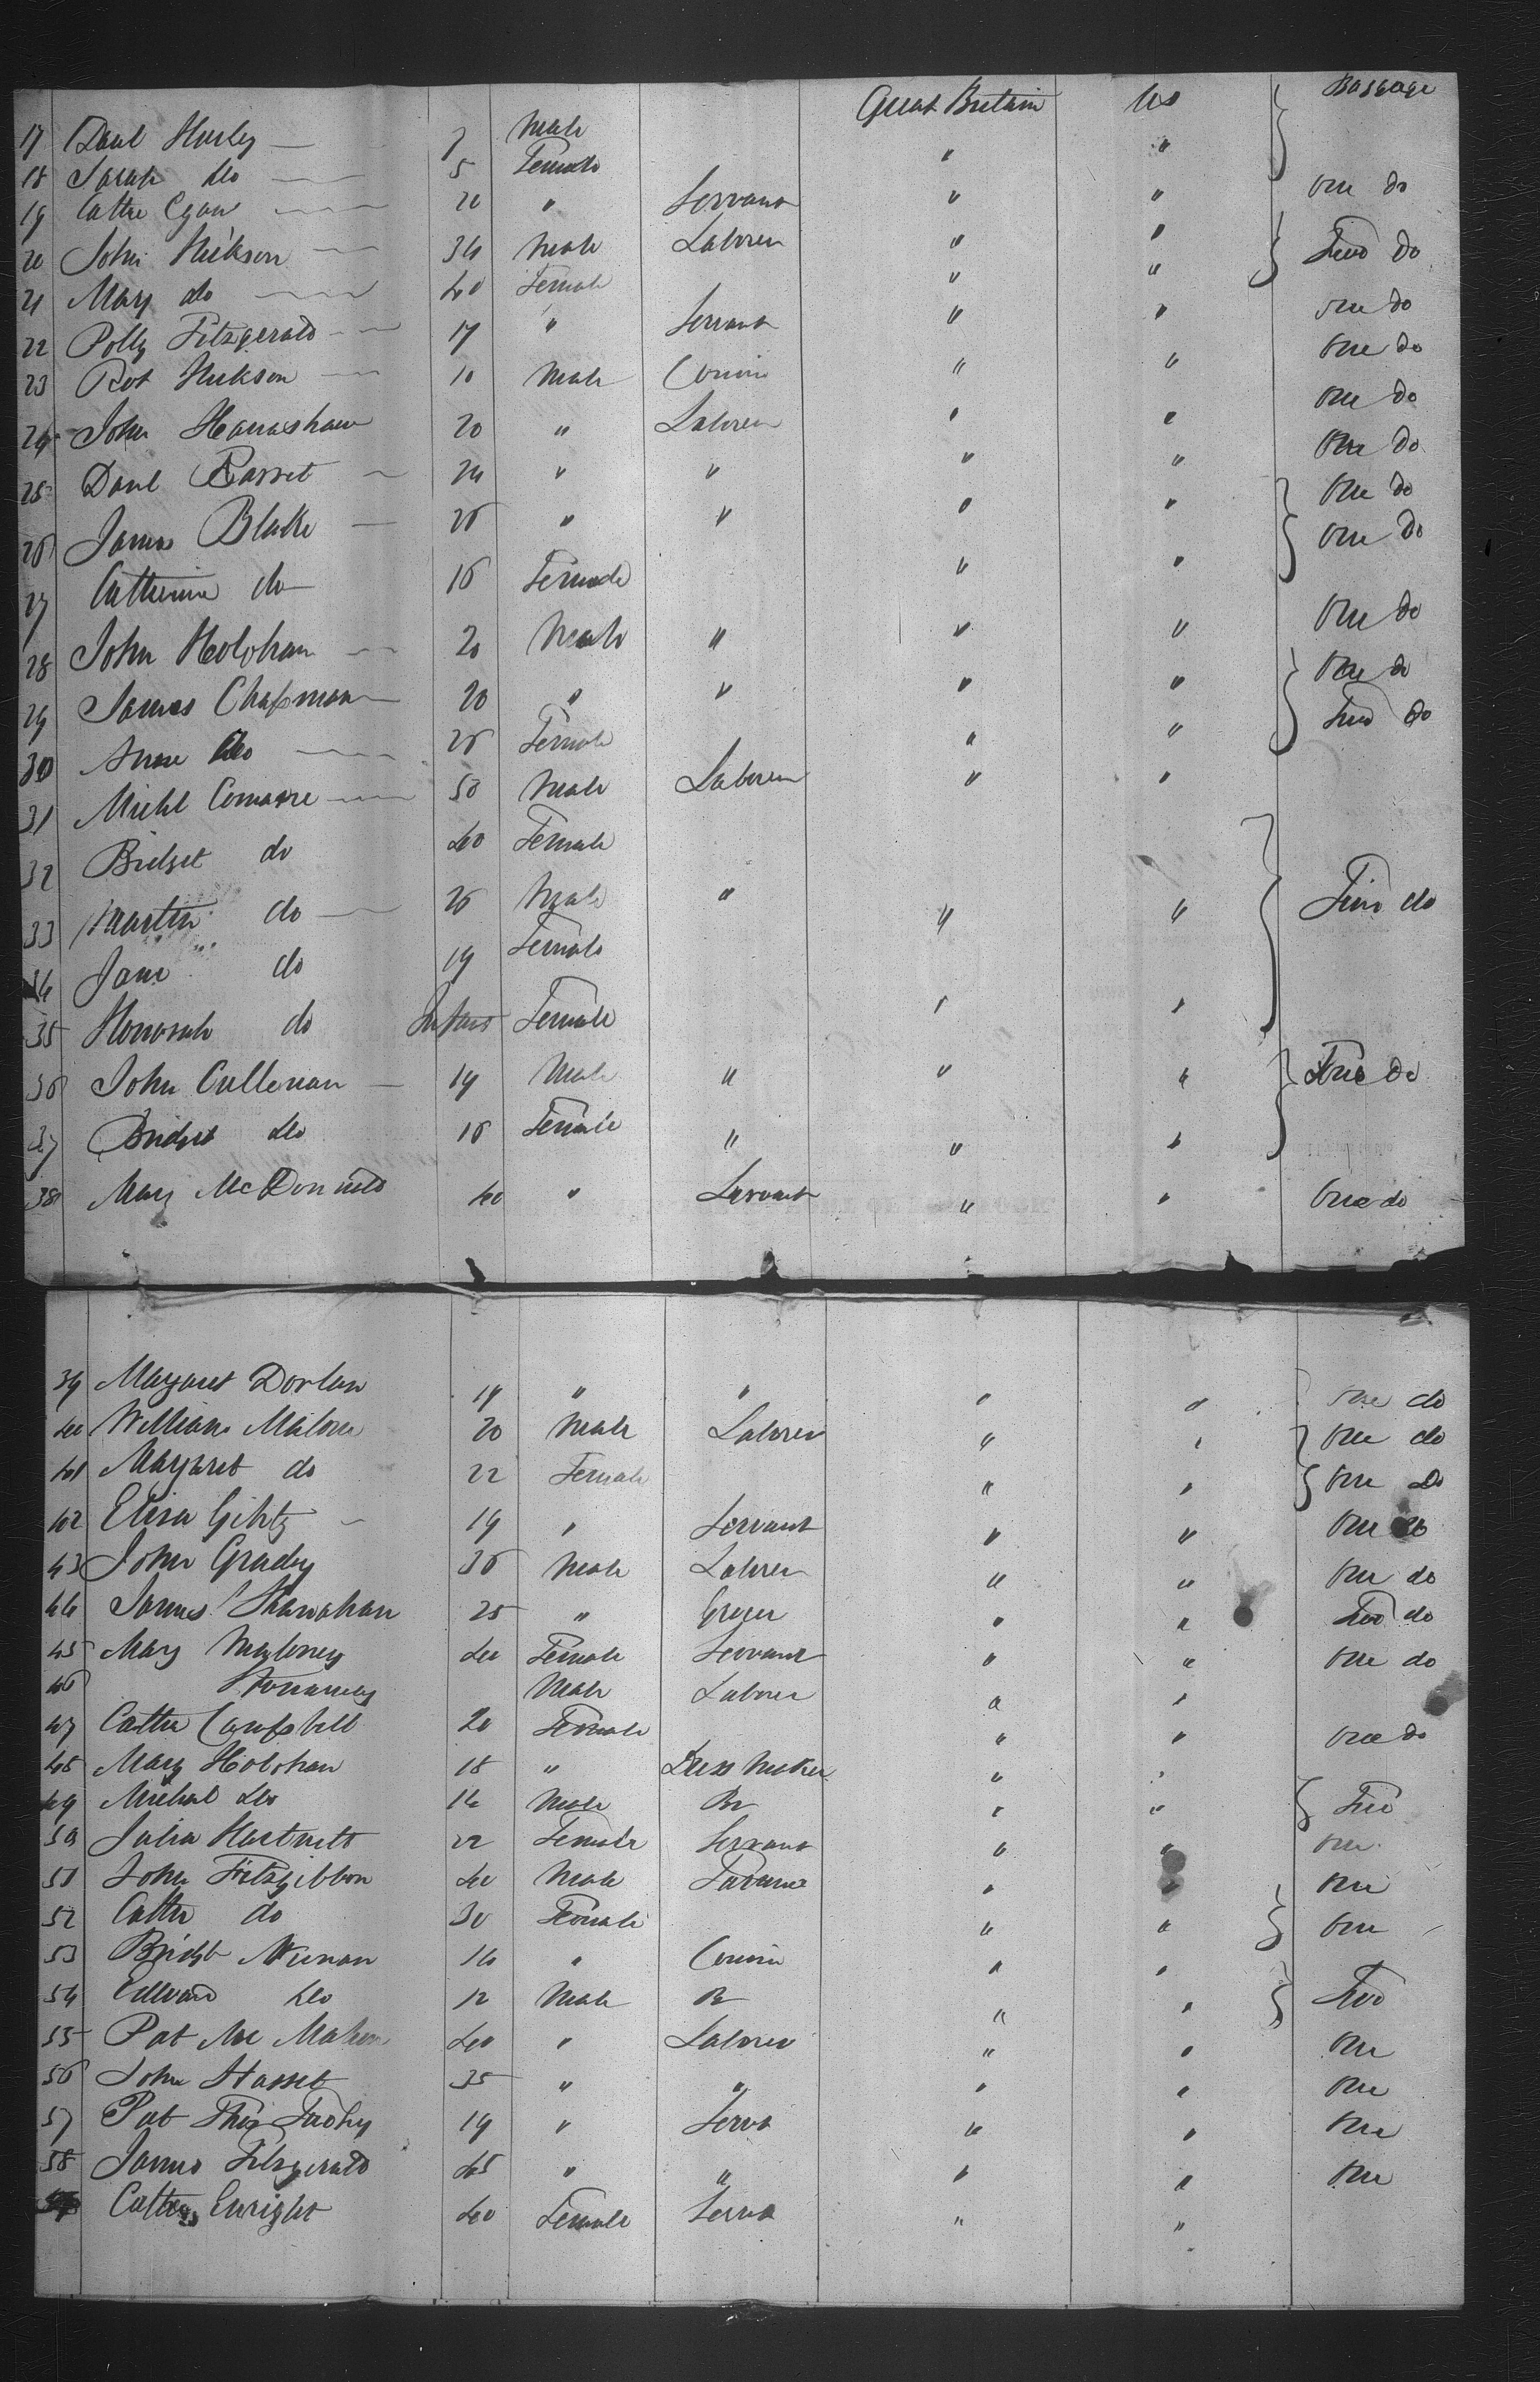 Great Britain US Baggage
17 Danl Hurley 7 Male
18 Sarah do 5 Female " "
19 Cathe Egan 20 " Servant " " One do
20 John Hickson 34 Male Laborer " " Two do
21 Mary do 40 Female " "
22 Polly Fitzgerald 17 " Servant " " One do
23 Rot Hickson 10 Male Cousin " " One do
24 John Hanrahan 20 " Laborer " " One do
25 Danl Basset 24 " " " " One do
26 James Blake 26 " " " " One do
27 Catherine do 16 Female " " One do
28 John Holohan 20 Male " " " One do
29 James Chapman 20 " " " " One do
30 Anne do 26 Female " " Two do
31 Michl 50 Male Laborer " "
32 Bridget do 40 Female
33 Martin do 26 Male " " " Two do
34 Jane do 19 Female
35 Honorah do Infant Female " "
36 John Cullenan 19 Male " " " Two do
37 Bridget do 16 Female " " "
38 Mary McDonneld 40 " Servant " " One do
39 Margaret Dorlan 19 " " " " One do
40 William Malone 20 Male Laborer " " One do
41 Margaret do 22 Female " " One Do
42 Eliza 19 " Servant " " One do
43 John Grady 36 Male Laborer " " One do
44 James Shanahan 25 " " " Two do
45 Mary Moloney 40 Female Servant " " One do
46 Male Laborer " "
47 Cathe Campbell 20 Female " " One do
48 Mary Holohan 18 " Dress Maker " "
49 Michael do 14 Male Br " " Two
50 Julia Hartnett 22 Female Servant " " One
51 John Fitzgibbon 40 Male " " One
52 Cathe do 30 Female " " One
53 Bridgt Neenan 14 " Cousin " "
54 Edward do 12 Male Br " " Two
55 Pat Mc Mahon 40 " Laborer " " One
56 John Hasset 35 " " " " One
57 Pat 19 " Servt " " One
58 James Fitzgerald 45 " " " " One
Cathe Enright 40 Female Servt " "